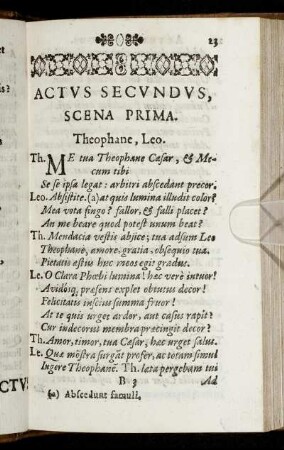 23
ACTVS SECVNDVS,
SCENA PRIMA.
Theophane, Leo.
Th. ME tua Theophane Cæsar, & Me-
cum tibi
Se se ipsa legat: arbitri abscedant precor.
Leo. Absistite. (a) at quis lumina illudit color?
Mea vota fingo? fallor, & falli placet?
An me beare quod potest unum beat?
Th. Mendacia vestis abjice; tua adsum Leo
Theophane, amore, gratia, obsequio tua.
Pietatis æstus huc meos egit gradus.
Le. O Clara Phœbi lumina! hac verè intuor!
Avidosq; præsens explet obtutus decor!
Felicitatis inscius summa fruor!
At te quis urget ardor, aut casus rapit?
Cur indecorus membra præcingit decor?
Th. Amor, timor, tua Cæsar, hac urget salus.
Le. Quæ mõstra surgãt profer, ac totam simul
Ingere Theophanẽ. Th. lata pergebam tui
B 3 Ad
(a) Abscedunt famuli.
CTVS